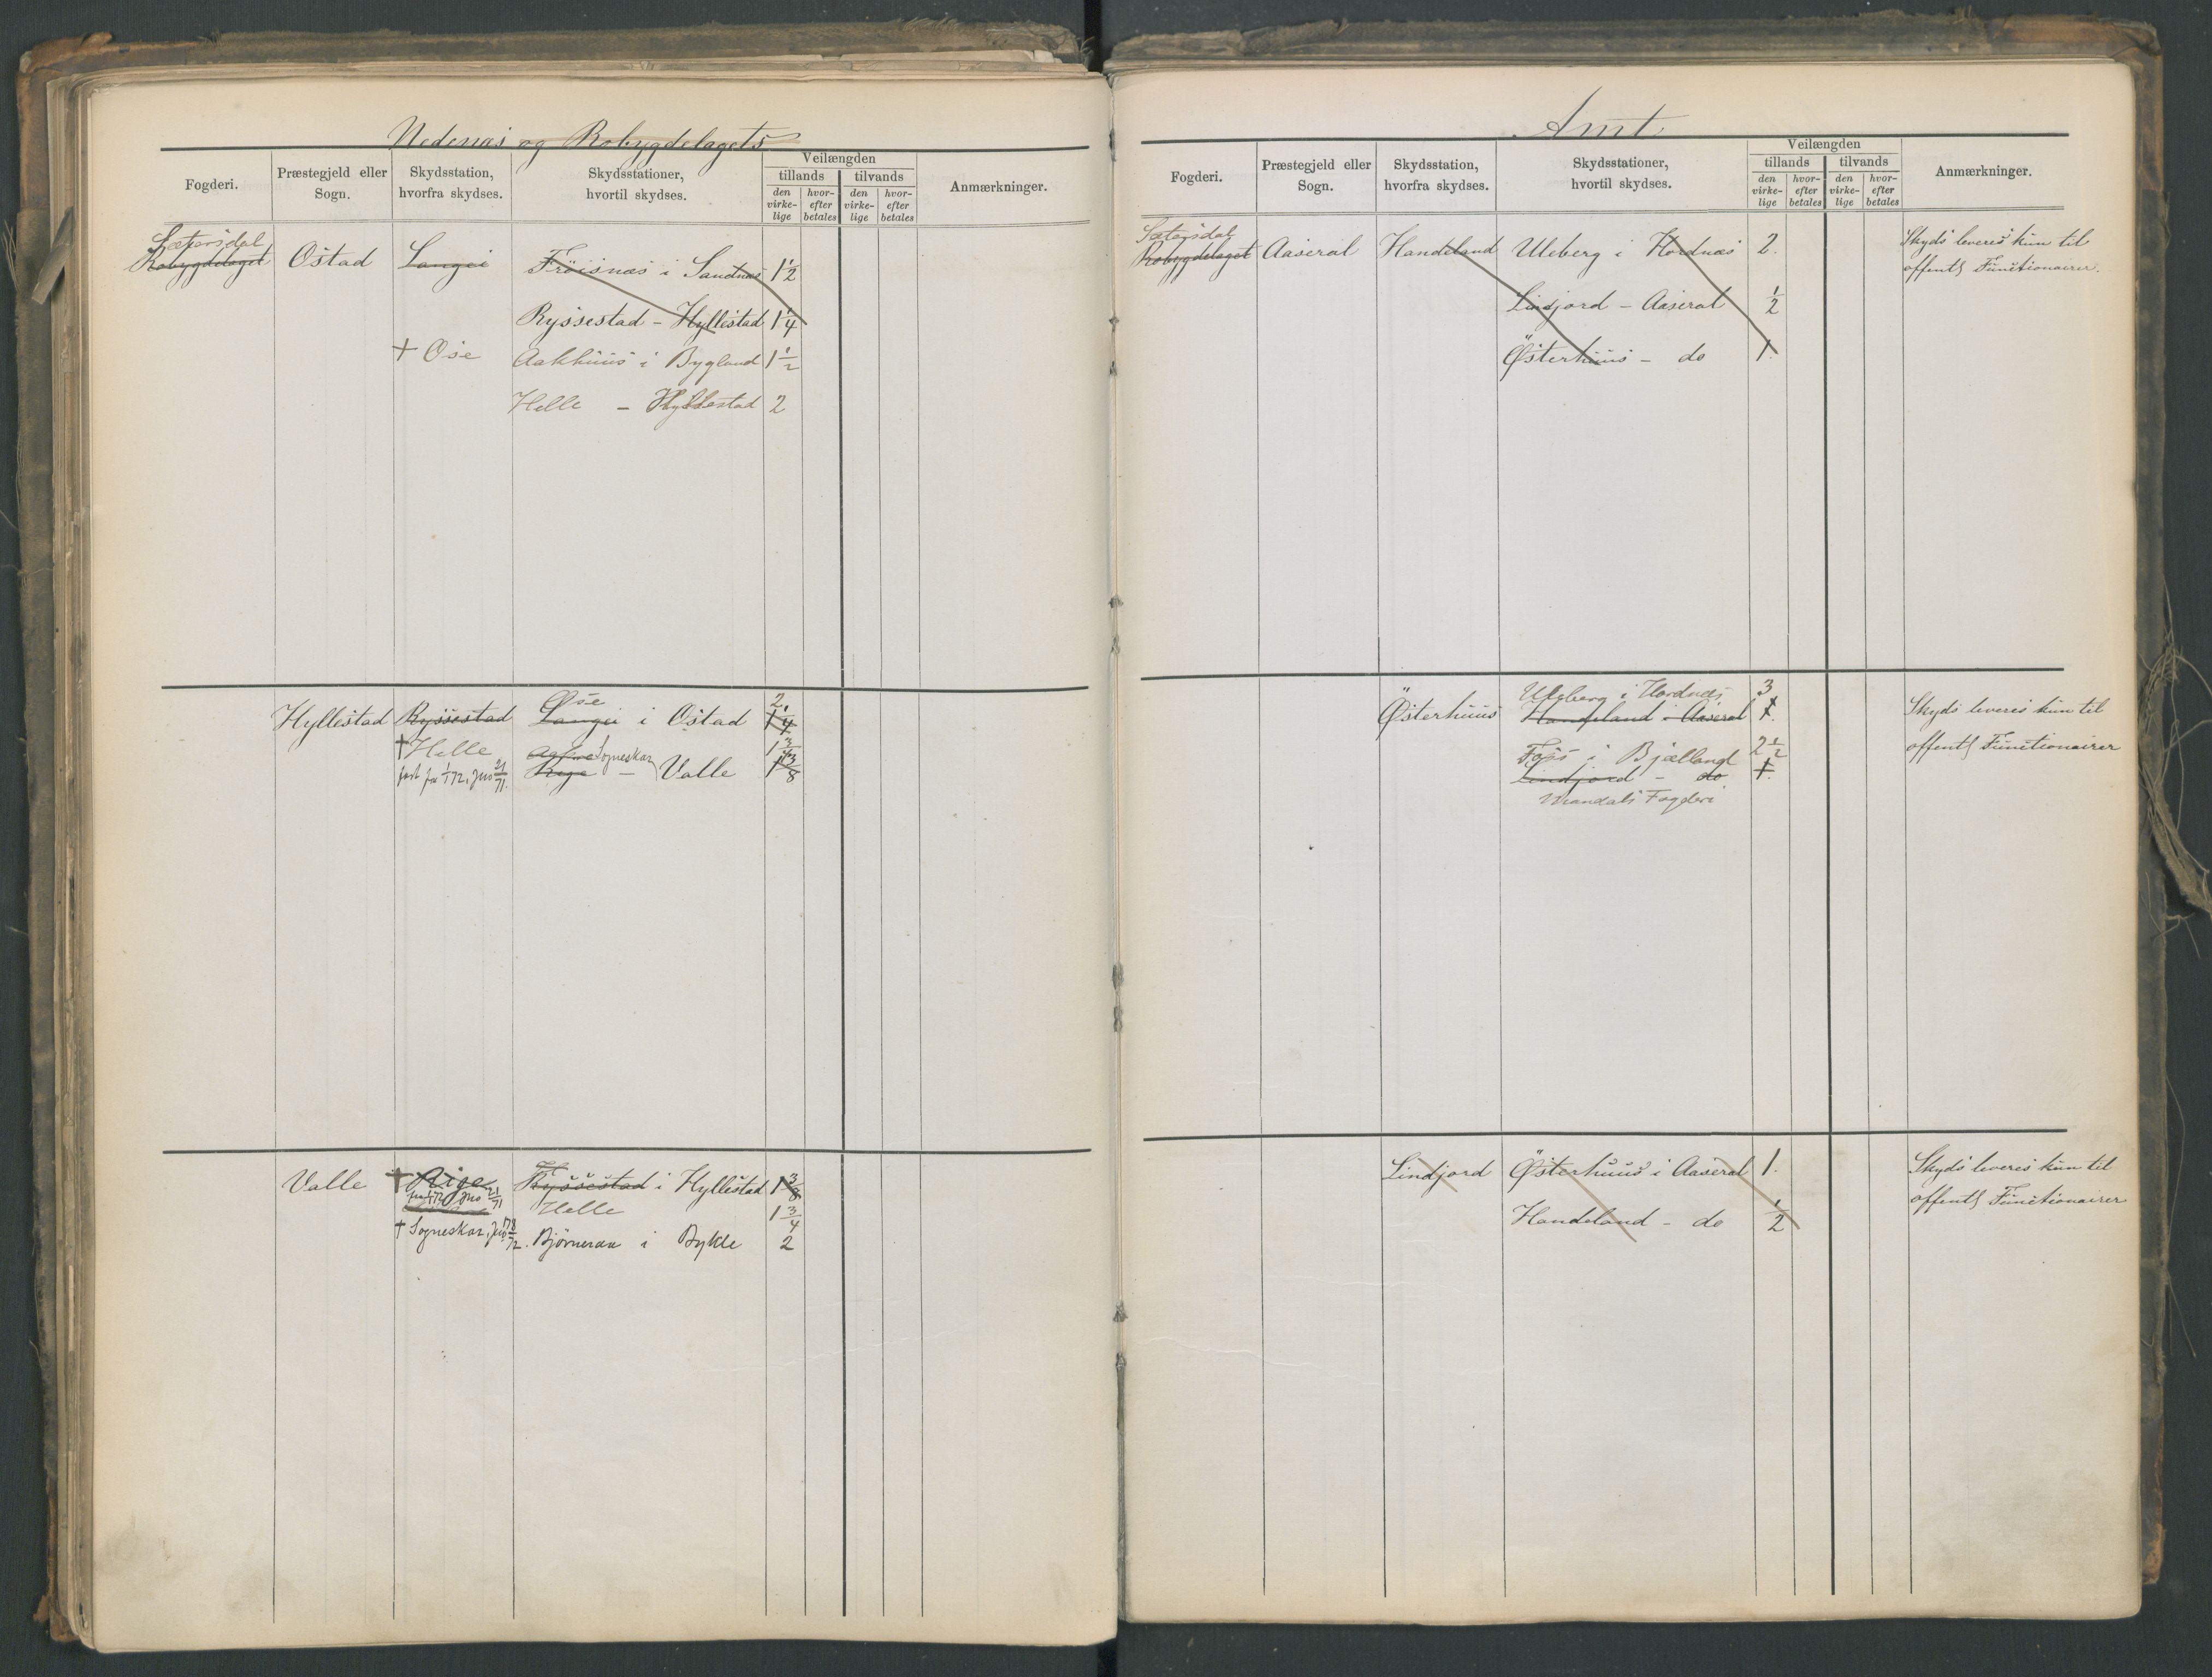 Nedenæs og Robygdelagets
Fogderi.
Præstegjeld eller
Sogn.
Skydsstation,
hvorfra skydses.
Skydsstationer,
hvortil skydses.
Veilængden
tillands
tilvands
den virke-lige
hvor-efter betales
den virke-lige
hvor-efter betales
Anmærkninger.
Sætersdal
Robygdelaget Ostad Langei Fröisnæs i Sandnæs 1 1/2
Ryssestad - Hyllestad 1 1/4
† Ose Aakhuus i Bygland 1 1/2
Helle - Hyllestad 2
Ose 2.
Hyllestad Ryssestad Langei i Ostad 1 1/4
† Helle Sogneskar 1 3/4
fast fra 1/1 72, Jno 21/71. Rige - Valle 1 3/8
Valle † Rige Ryssestad i Hyllestad 1 3/8
Jno 21/71 Helle 1 3/4
† Sogneskar, Bjørneraa i Bykle 2
Amt
Fogderi.
Præstegjeld eller
Sogn.
Skydsstation,
hvorfra skydses.
Skydsstationer,
hvortil skydses.
Veilængden
tillands
tilvands
den virke-lige
hvor-efter betales
den virke-lige
hvor-efter betales
Anmærkninger.
Sætersdal
Robygdelaget Aaseral Handeland Uleberg i Hordnæs 2. Skyds leveres kun til
offentl Functionairer.
Lindjord - Aaseral 1/2
Österhuus - do 1.
Uleberg i Hordnæs 3
Österhuus Handeland i Aaseral 1. Skyds leveres kun til
offentl Functionairer
Foss i Bjælland 2 1/2
Lindjord - do 1.
Mandals Fogderi
Lindjord Österhuus i Aaseral 1. Skyds leveres kun til
offentl Functionairer
Handeland - do 1/2